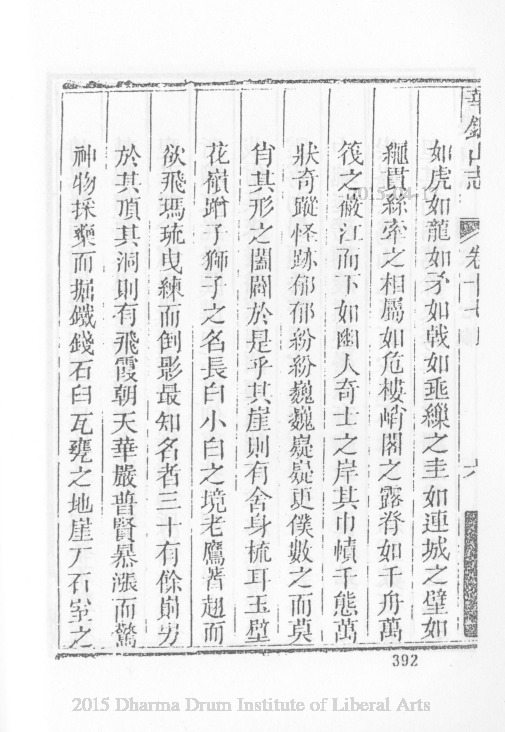 華鎣山志
卷十七
六
如虎如龍如矛如戟如垂繅之圭如連城之璧如
繩貫絲牽之相屬如危樓峭閣之露脊如千舟萬
筏之蔽江而下如幽人奇士之岸其巾幘千態萬
狀奇蹤怪跡郁郁紛紛巍巍嶷嶷更僕數之而莫
肖其形之闔闢於是乎其崖則有舍身梳耳玉壁
花嶺蹲子獅子之名長白小白之境老鷹蓍翅而
欲飛瑪琉曳練而倒影最知名者三十有餘
於其頂其洞則有飛霞朝天華嚴普賢暴漲而驚
神物採藥而掘鐵錢石臼瓦甕之地崖石室之
392
2015 Dharma Drum Institute of Liberal Arts